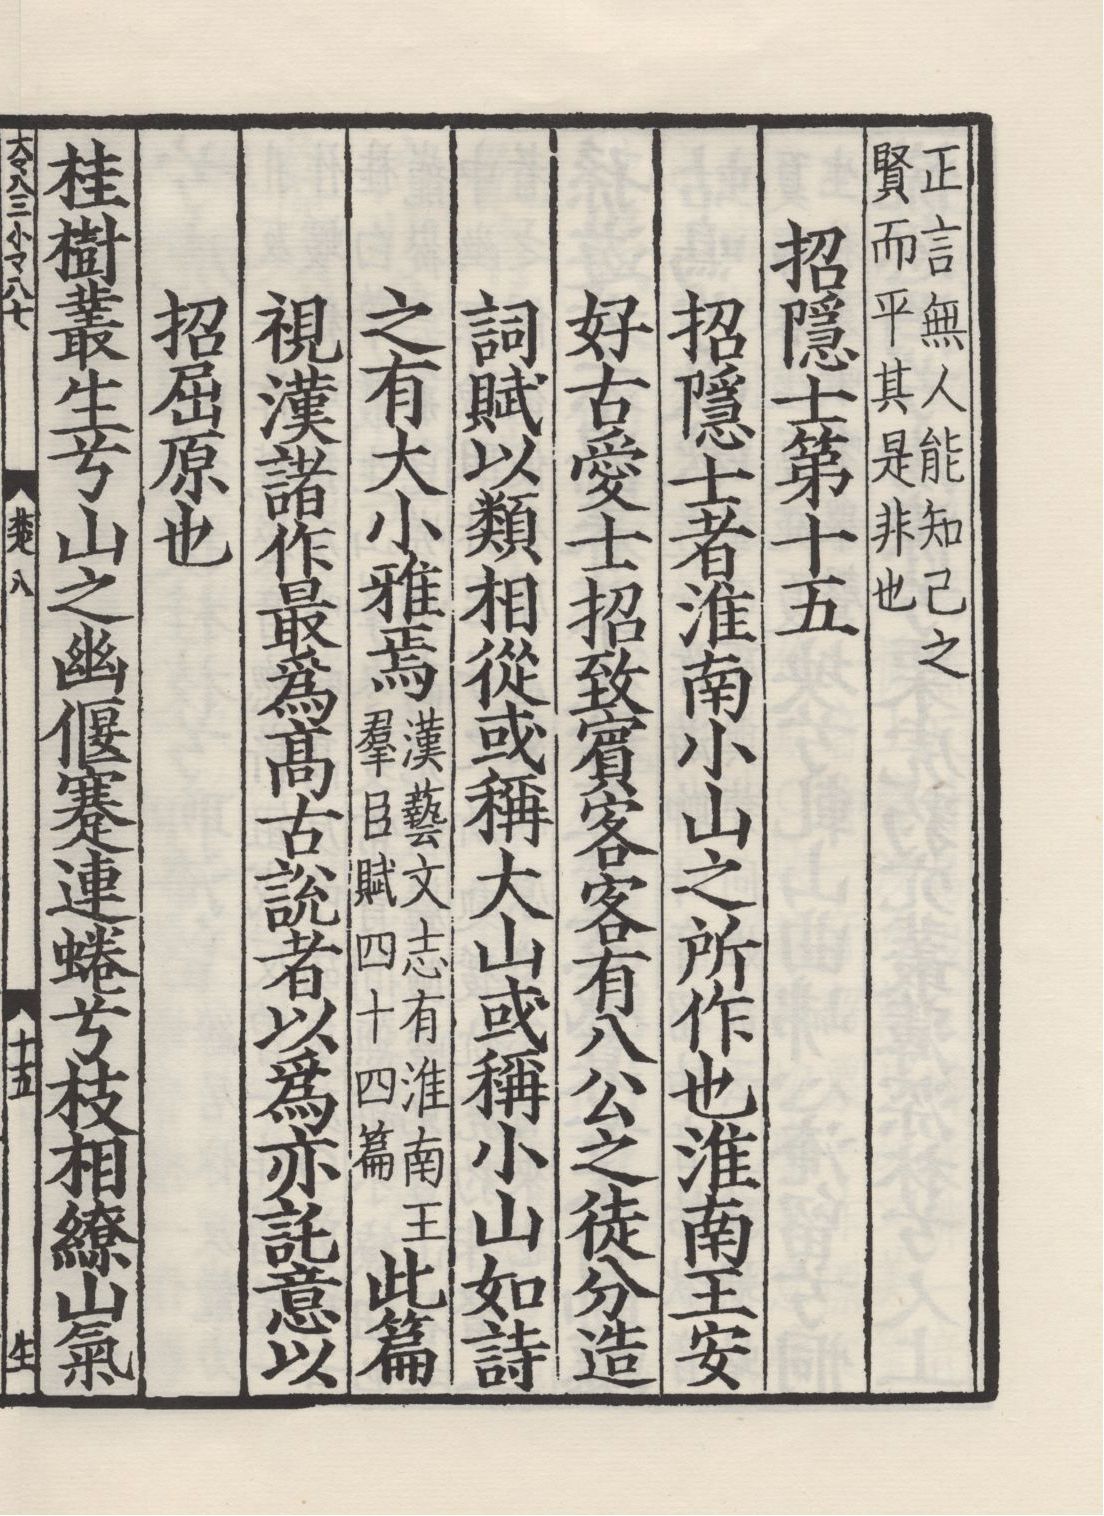 正言無人能知己之
賢而平其是非也
招隱士第十五
招隱士者淮南小山之所作也淮南王安
好古愛士招致賓客客有八公之徒分造
詞賦以類相從或稱大山或稱小山如詩
之有大小雅焉漢藝文志有淮南王羣臣賦四十四篇此篇
視漢諸作最爲高古說者以爲亦託意以
招屈原也
桂樹叢生兮山之幽偃蹇連蜷兮枝相繚山氣
八
十五
生